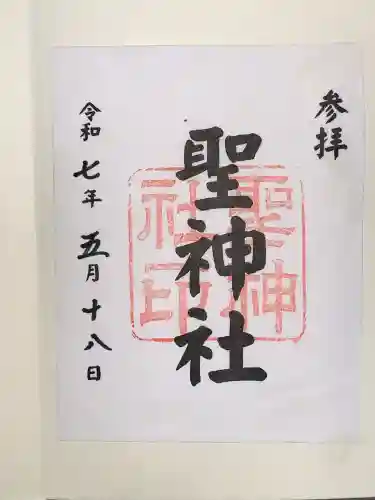 参拝
聖神社
聖神
社印
令和七年五月十八日